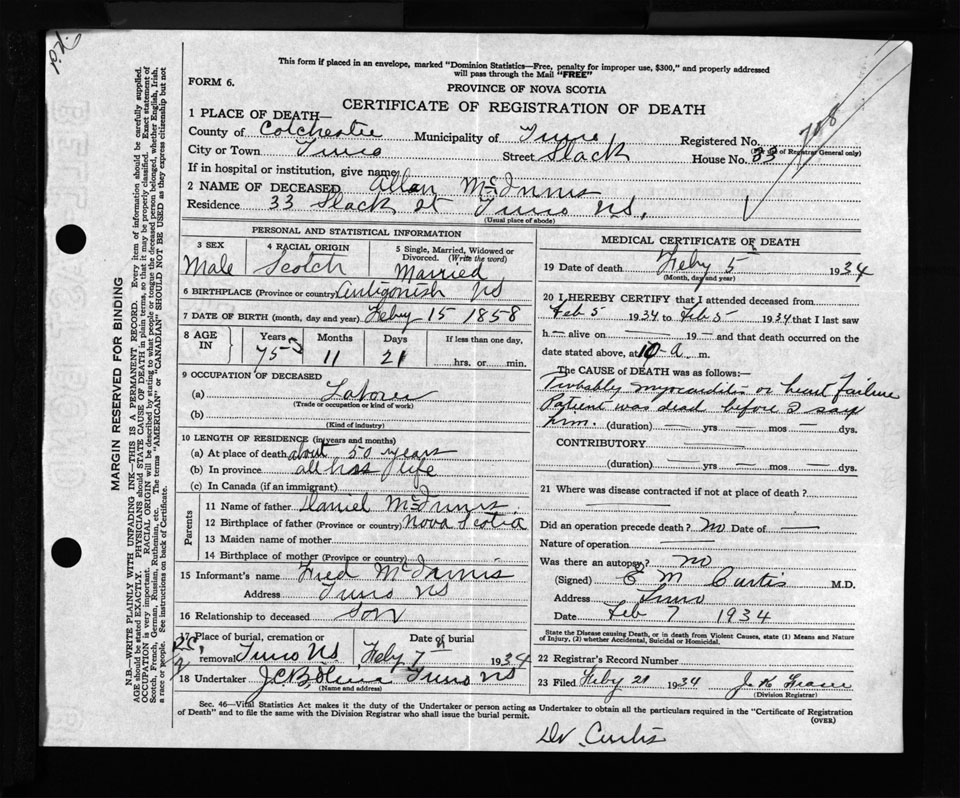 This form if placed in an envelope, marked "Dominion Statistics—Free, penalty for improper use, $300," and properly addressed
will pass through the Mail "FREE"
FORM 6.
PROVINCE OF NOVA SCOTIA
CERTIFICATE OF REGISTRATION OF DEATH
1 PLACE OF DEATH—
County of Colchester Municipality of Truro Registered No. 708
(For use of Registrar General only)
City or Town Truro Street Slack House No. 33
If in hospital or institution, give name
2 NAME OF DECEASED Allan McInnis
Residence 33 Slack st Truro NS.
(Usual place of abode)
PERSONAL AND STATISTICAL INFORMATION
3 SEX
Male
4 RACIAL ORIGIN
Scotch
5 Single, Married, Widowed or
Divorced. (Write the word)
Married
6 BIRTHPLACE (Province or country) Antigonish NS
7 DATE OF BIRTH (month, day and year) Feby 15 1858
8 AGE IN
Years 75
Months 11
Days 21
If less than one day,
hrs. or min.
9 OCCUPATION OF DECEASED
(a) Laborer
(Trade or occupation or kind of work)
(b)
(Kind of industry)
10 LENGTH OF RESIDENCE (in years and months)
(a) At place of death about 50 years
(b) In province all his life
(c) In Canada (if an immigrant)
Parents
11 Name of father Daniel McInnis
12 Birthplace of father (Province or country) Nova Scotia
13 Maiden name of mother
14 Birthplace of mother (Province or country)
15 Informant's name Fred McInnis
Address Truro NS
16 Relationship to deceased Son
17 Place of burial, cremation or
removal Truro NS
Date of burial
Feby 7th 1934
18 Undertaker Truro NS
(Name and address)
MEDICAL CERTIFICATE OF DEATH
19 Date of death Feby 5 1934
(Month, day and year)
20 I HEREBY CERTIFY that I attended deceased from
Feb 5 1934 to Feb 5 1934 that I last saw
h— alive on — 19 — and that death occurred on the
date stated above, at 10-a m.
The CAUSE of DEATH was as follows:—
Probably myocarditis or heart failure
Patient was dead before I saw
him. (duration) — yrs — mos — dys.
CONTRIBUTORY —
(duration) — yrs — mos — dys.
21 Where was disease contracted if not at place of death?
Did an operation precede death? No Date of —
Nature of operation —
Was there an autopsy? no
(Signed) E M Curtis M.D.
Address Truro
Date Feb 7 1934
State the Disease causing Death, or in death from Violent Causes, state (1) Means and Nature
of Injury, (2) whether Accidental, Suicidal or Homicidal.
22 Registrar's Record Number
23 Filed Feby 21 1934
(Division Registrar)
Sec. 46—Vital Statistics Act makes it the duty of the Undertaker or person acting as Undertaker to obtain all the particulars required in the "Certificate of Registration
of Death" and to file the same with the Division Registrar who shall issue the burial permit.
(OVER)
Dr. Curtis
MARGIN RESERVED FOR BINDING
N.B.—WRITE PLAINLY WITH UNFADING INK—THIS IS A PERMANENT RECORD. Every item of information should be carefully supplied.
AGE should be stated EXACTLY. PHYSICIANS should STATE CAUSE OF DEATH in plain terms, so that it may be properly classified. Exact statement of
OCCUPATION is very important. RACIAL ORIGIN will be described by stating to what people or tongue the deceased person belonged, whether English, Irish,
Scotch, French, German, Russian, Ruthenian, etc. The terms "AMERICAN" or "CANADIAN" SHOULD NOT BE USED as they express citizenship but not
a race or people. See instructions on back of Certificate.